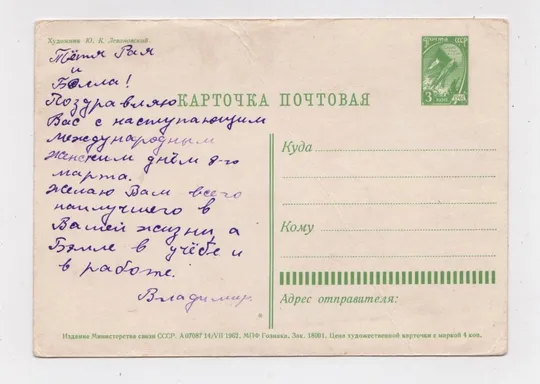 Художник Ю. К. Левоновский
Тётя Рая
и
Бэлла!
Поздравляю
Вас с наступающим
международным
женским днём 8-го
марта.
Желаю Вам всего
наилучшего в
Вашей жизни, а
Бэлле в учёбе и
и в работе.
Владимир.
КАРТОЧКА ПОЧТОВАЯ
ПОЧТА СССР
3 коп
Куда
Кому
Адрес отправителя:
Издание Министерства связи СССР. 14/VII 1962. МПФ Гознака. Зак. Цена художественной карточки с маркой 4 коп.